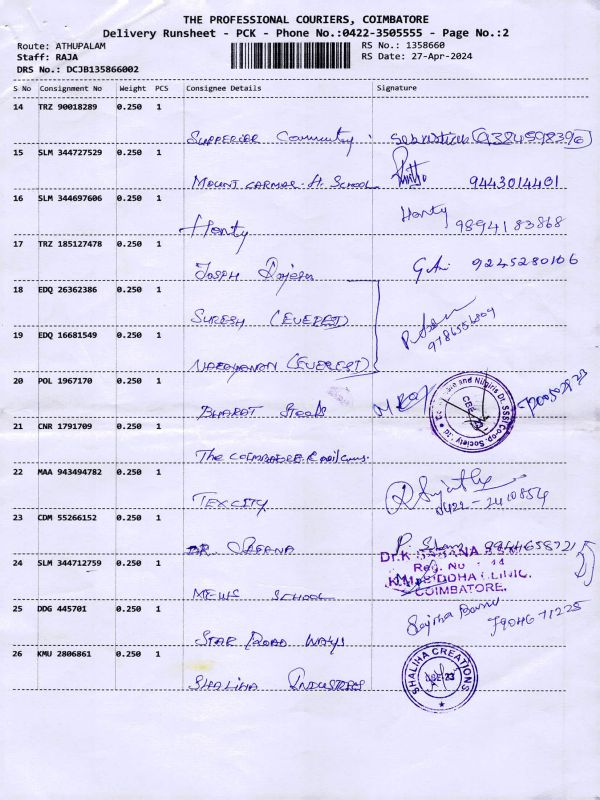 THE PROFESSIONAL COURIERS, COIMBATORE
Delivery Runsheet - PCK - Phone No.:0422-3505555 - Page No.:2
Route: ATHUPALAM
RS No.: 1358660
Staff: RAJA
RS Date: 27-Apr-2024
DRS No.: DCJB135866002
S No Consignment No Weight PCS Consignee Details Signature
14 TRZ 90018289 0.250 1
SUPPERIER 9384598396
15 SLM 344727529 0.250 1
MOUNT CARMAR. H. SCHOOL 9443014401
16 SLM 344697606 0.250 1
Honty Honty 9894183868
17 TRZ 185127478 0.250 1
JOSEPH 9245280106
18 EDQ 26362386 0.250 1
SURESH (EVEREST)
9786556809
19 EDQ 16681549 0.250 1
NARAYANAN (EVEREST)
20 POL 1967170 0.250 1
BHARAT Steels
and Nilgiris Dt. SSSI Co-op. Society Ltd
21 CNR 1791709 0.250 1
The COIMBATORE
22 MAA 943494782 0.250 1
TEXCITY
0422-2410854
23 CDM 55266152 0.250 1
DR 9944658721
Dr.K
Reg. No
24 SLM 344712759 0.250 1
SIDDHA CLINIC,
COIMBATORE.
MEWS SCHOOL
25 DDG 445701 0.250 1
STAR ROAD WAYS
26 KMU 2806861 0.250 1
SHALIHA INDUSTRYS
SHALIHA CREATIONS
CBE 23